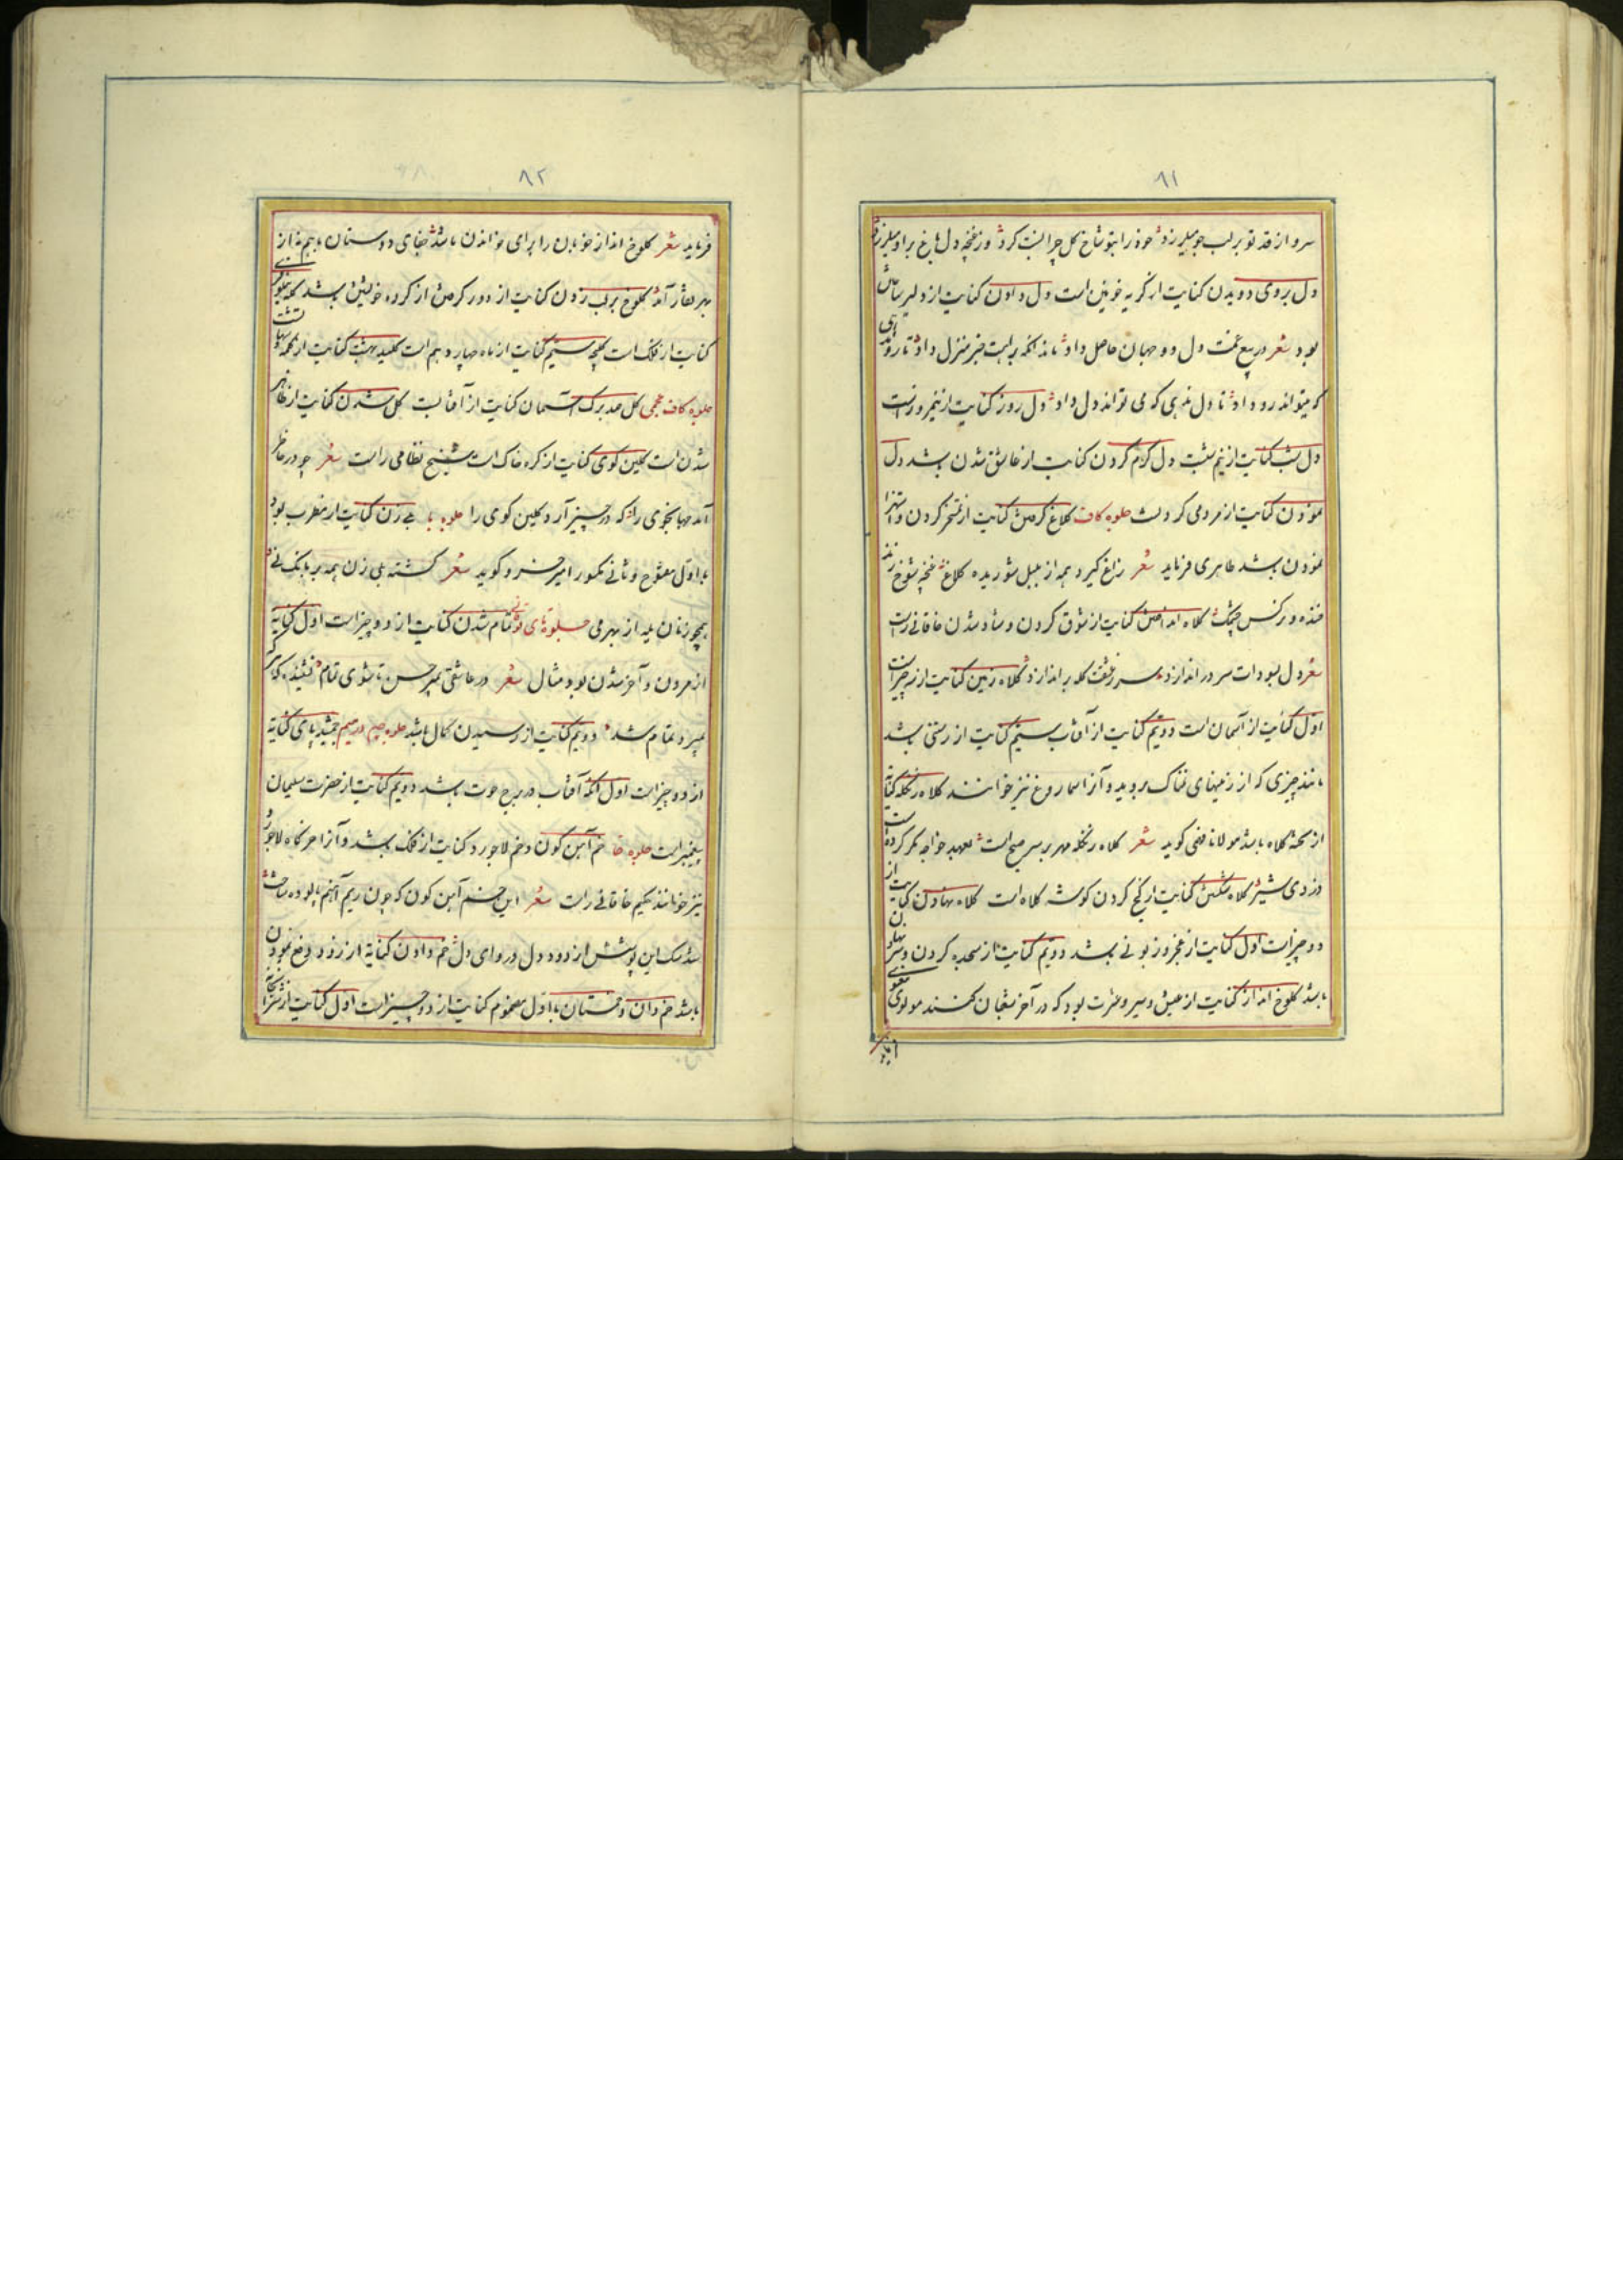 ۸۱
سرو از قد تو بر لب جو میلرزد خود را بتو شاخ گل چرا نسبت کرد وز غنچه دل باغ بر او میلرزد
دل بروی دویدن کنایت از گریه خونین است دل دادن کنایت از دلیر ساختن
بود شعر در بیع غمت دل دو جهان حاصل داد
که میتواند رو داد تا دل ندهی که می تواند دل داد دل روز کنایت از نیمروز است
دل شب کنایت از نیم شب دل گرم کردن کنایت از عاشق شدن باشد دل
نمودن کنایت از مردمی کردنست جلوه کاف کلاغ گرفتن کنایت از تمسخر کردن و استهزا
نمودن باشد طاهری فرماید شعر زاغ گیرد همه از بلبل شوریده کلاغ غنچه شوخ
خنده و نرگس چشمک کلاه انداختن کنایت از شوق کردن و شاد شدن خاقانی راست
شعر دل بسودات سر در اندازد سر ز عشقت کله بر اندازد کلاه زمین کنایت از سه چیز است
اول کنایت از آسمان است دویم کنایت از آفتاب سیم کنایت از رستنی باشد
مانند چیزی که از زمینهای نمناک بروید و آنرا سماروغ نیز خوانند کلاه زنگله کنایة
از تخته کلاه باشد مولانا فوقی گوید شعر کلاه زنگله مهر بر سر صبح است بعهد خواجه مگر کرده است
دزدی شیر کلاه شکستن کنایت از کج کردن گوشه کلاه است کلاه نهادن کنایت از
دو چیز است اول کنایت از عجز و زبونی باشد دویم کنایت از سجده کردن و سر نهادن
باشد کلوخ انداز کنایت از عیش و سیر و عشرت بود که در آخر شعبان کنند مولوی معنوی
فرماید
۸۲
فرماید شعر کلوخ انداز خوبان را برای خواندن باشد جفای دوستان با هم نه از
بهر نفار آمد کلوخ بر لب زدن کنایت از دور کردن از کرده خویش باشد
کنایت از فلک است کلیچه سیم کنایت از ماه چهاردهم است کلید بهشت کنایت از کلمه شهادت
جلوه کاف عجمی گل صد برگ آسمان کنایت از آفتابست گل شدن کنایت از ظاهر
شدن است گلین گوی کنایت از کره خاک است شیخ نظامی راست شعر چو در خاطر
آمد جهانجوی را که در چنبر آرد گلین گوی را جلوه با بی زن کنایت از مطرب بود
با اول مفتوح و ثانی مکسور امیر خسرو گوید شعر گشته بلی زن همه بر بانگ نی
همچو زنان بله از بهر می جلوه تای تمام شدن کنایت از دو چیز است اول کنایة
از مردن و آخر شدن بود مثال شعر در عاشقی بمیر حسن تا شوی تمام نشنیدۀ که هر که
بمیرد تمام شد دویم کنایت از رسیدن کمال باشد جلوه جیم در میم جمشید بای کنایة
از دو چیز است اول آنکه آفتاب در برج حوت باشد دویم کنایت از حضرت سلیمان
پیغمبر است جلوه خا خم آهن گون و خم لاجورد کنایت از فلک باشد و آنرا خرگاه لاجورد
نیز خوانند حکیم خاقانی راست شعر این خم آهن گون که چون ریم آهنم پالوده ساخت
شد سنگ این پوشش از دود دل دروای دل خم دادن کنایة از زود دفع نمودن
باشد خم دان و خمستان با اول مضموم کنایت از دو چیز است اول کنایت از شرابخانه